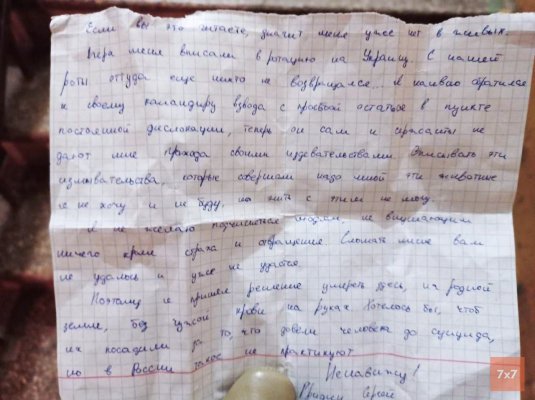 Если вы это читаете, значит меня уже нет в живых.
Вчера меня вписали в ротацию на Украину. С нашей
роты оттуда еще никто не возвращался... я наивно обратился
к своему командиру взвода с просьбой остаться в пункте
постоянной дислокации, теперь он сам и сержанты не
дают мне прохода своими издевательствами. Описывать эти
издевательства, которые совершали надо мной эти животные
я не хочу и не буду, но жить с этим не могу.
Я не желаю подчиняться людям, не внушающим
ничего кроме страха и отвращения. Сломать меня вам
не удалось и уже не удастся.
Поэтому я принял решение умереть здесь, на родной
земле, без чужой крови на руках. Хотелось бы, чтоб
их посадили за то, что довели человека до суицида,
но в России такое не практикуют
Ненавижу!
7x7